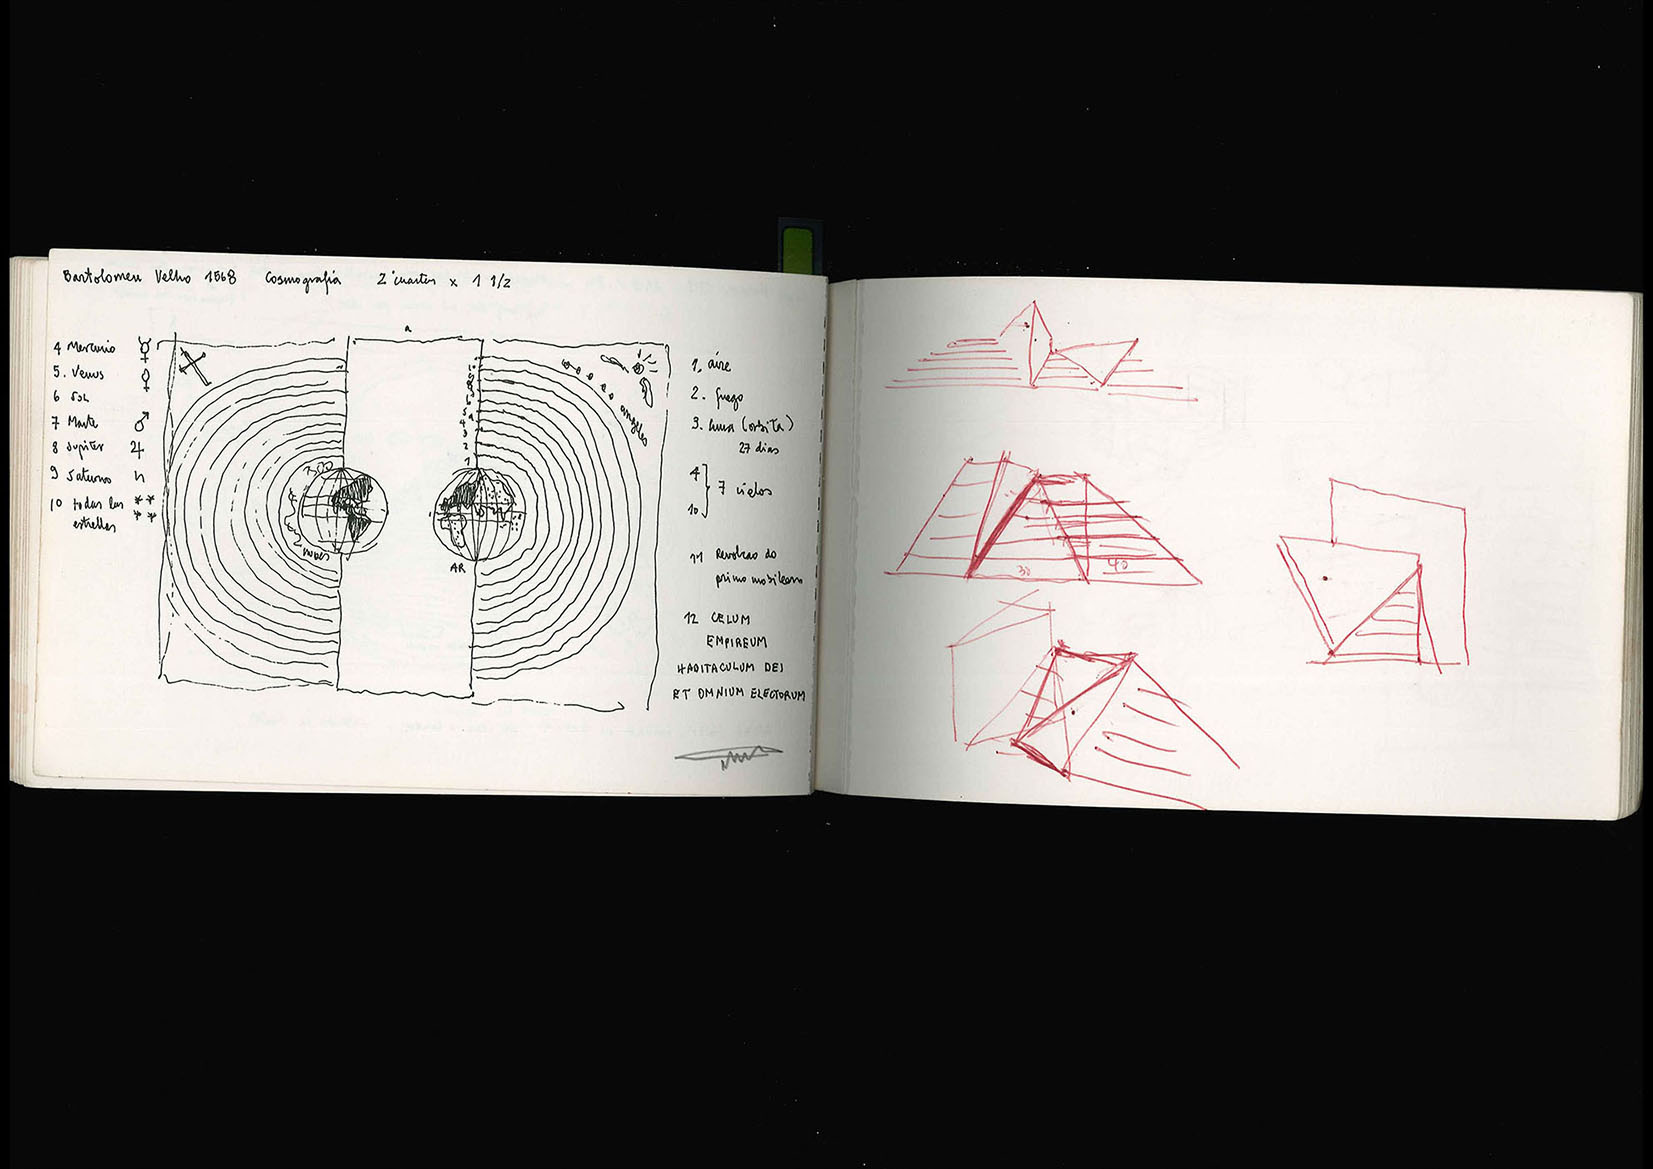 Bartolomeu Velho 1568 Cosmografia 2 cuartos x 1 1/2
a
4 Mercurio ☿
5. Venus ♀
6 Sol
7 Marte ♂
8 Jupiter ♃
9 Saturno ♄
10 todas las
estrellas
300
nubes
AR
1
2
3
4
5
6
angeles
1. aire
2. fuego
3. luna (orbita)
27 dias
4
7 cielos
10
11 Revolcao do
primo mobile
12 CELUM
EMPIREUM
HABITACULUM DEI
ET OMNIUM ELECTORUM
30
40